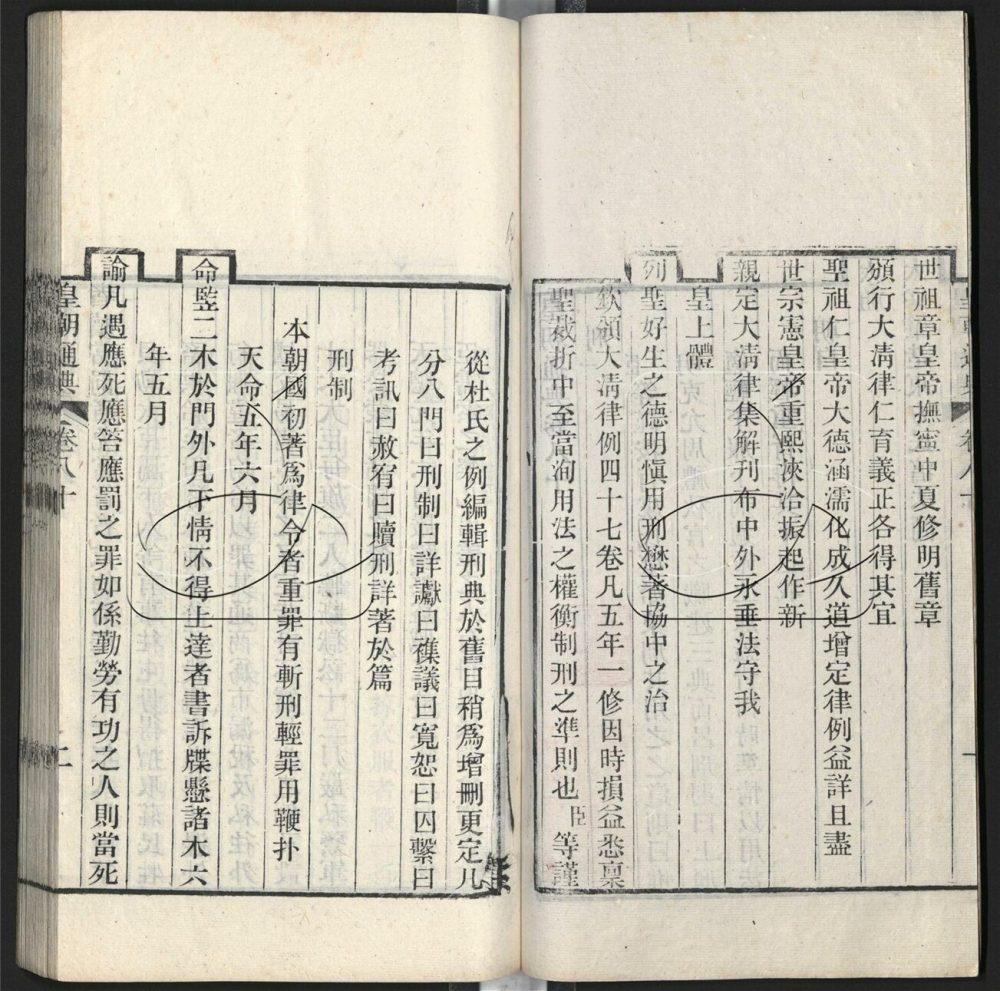 世祖章皇帝撫寧中夏修明舊章
頒行大淸律仁育義正各得其宜
聖祖仁皇帝大德涵濡化成久道增定律例益詳且盡
世宗憲皇帝重熙浹洽振起作新
親定大淸律集解刊布中外永垂法守我
皇上體
列聖好生之德明愼用刑懋著協中之治
欽頒大淸律例四十七卷凡五年一修因時損益悉稟
聖裁折中至當洵用法之權衡制刑之準則也臣等謹
從杜氏之例編輯刑典於舊目稍爲增刪更定凡
分八門曰刑制曰詳讞曰雜議曰寬恕曰囚繫曰
考訊曰赦宥曰贖刑詳著於篇
刑制
本朝國初著爲律令者重罪有斬刑輕罪用鞭扑
天命五年六月
命竪二木於門外凡下情不得上達者書訴牒懸諸木六
年五月
諭凡遇應死應笞應罰之罪如係勤勞有功之人則當死
皇朝通典 卷八十 二